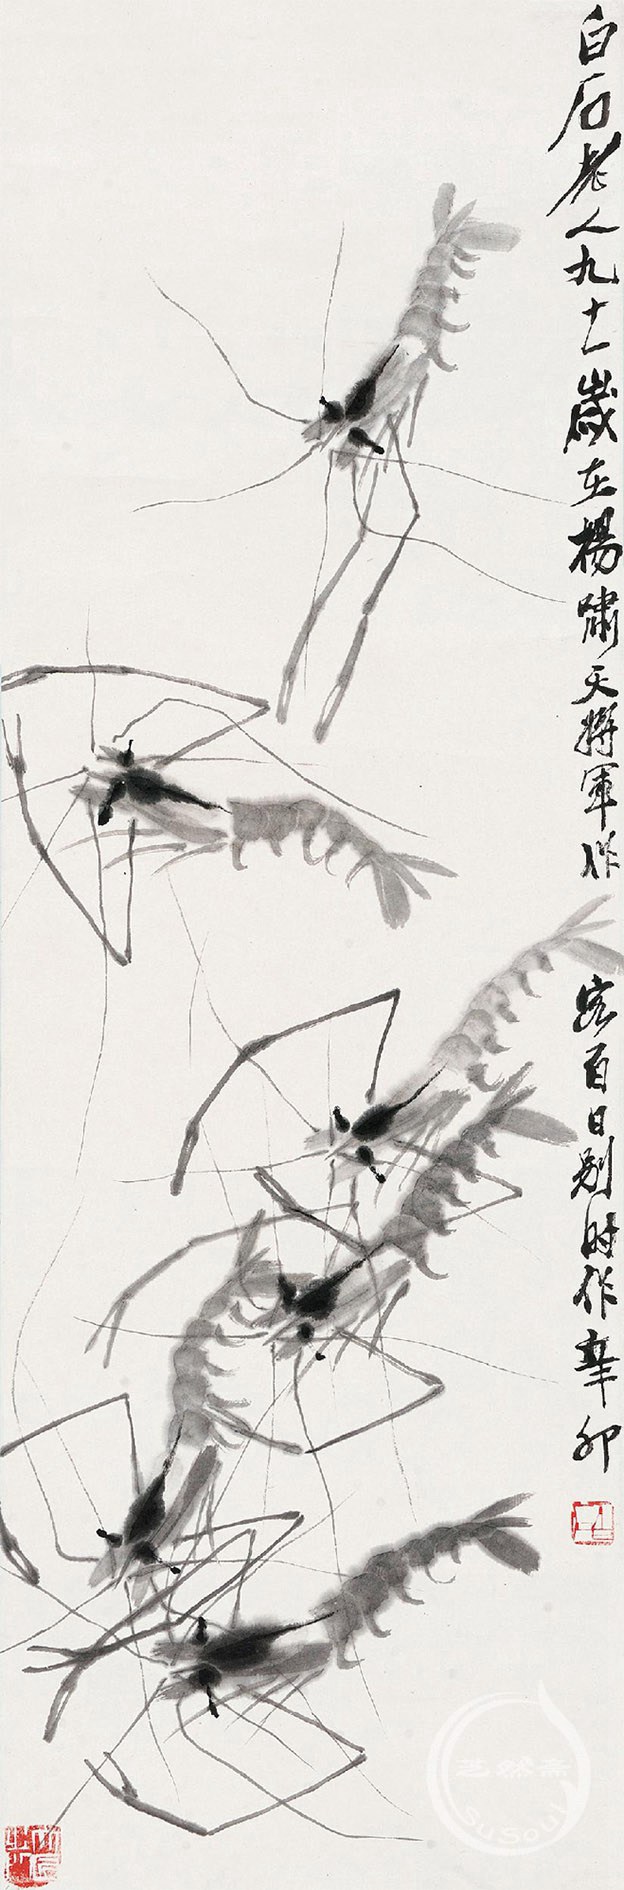 白石老人九十一歲在楊嘯天將軍作
客百日別時作辛卯
艺然斋
Soul